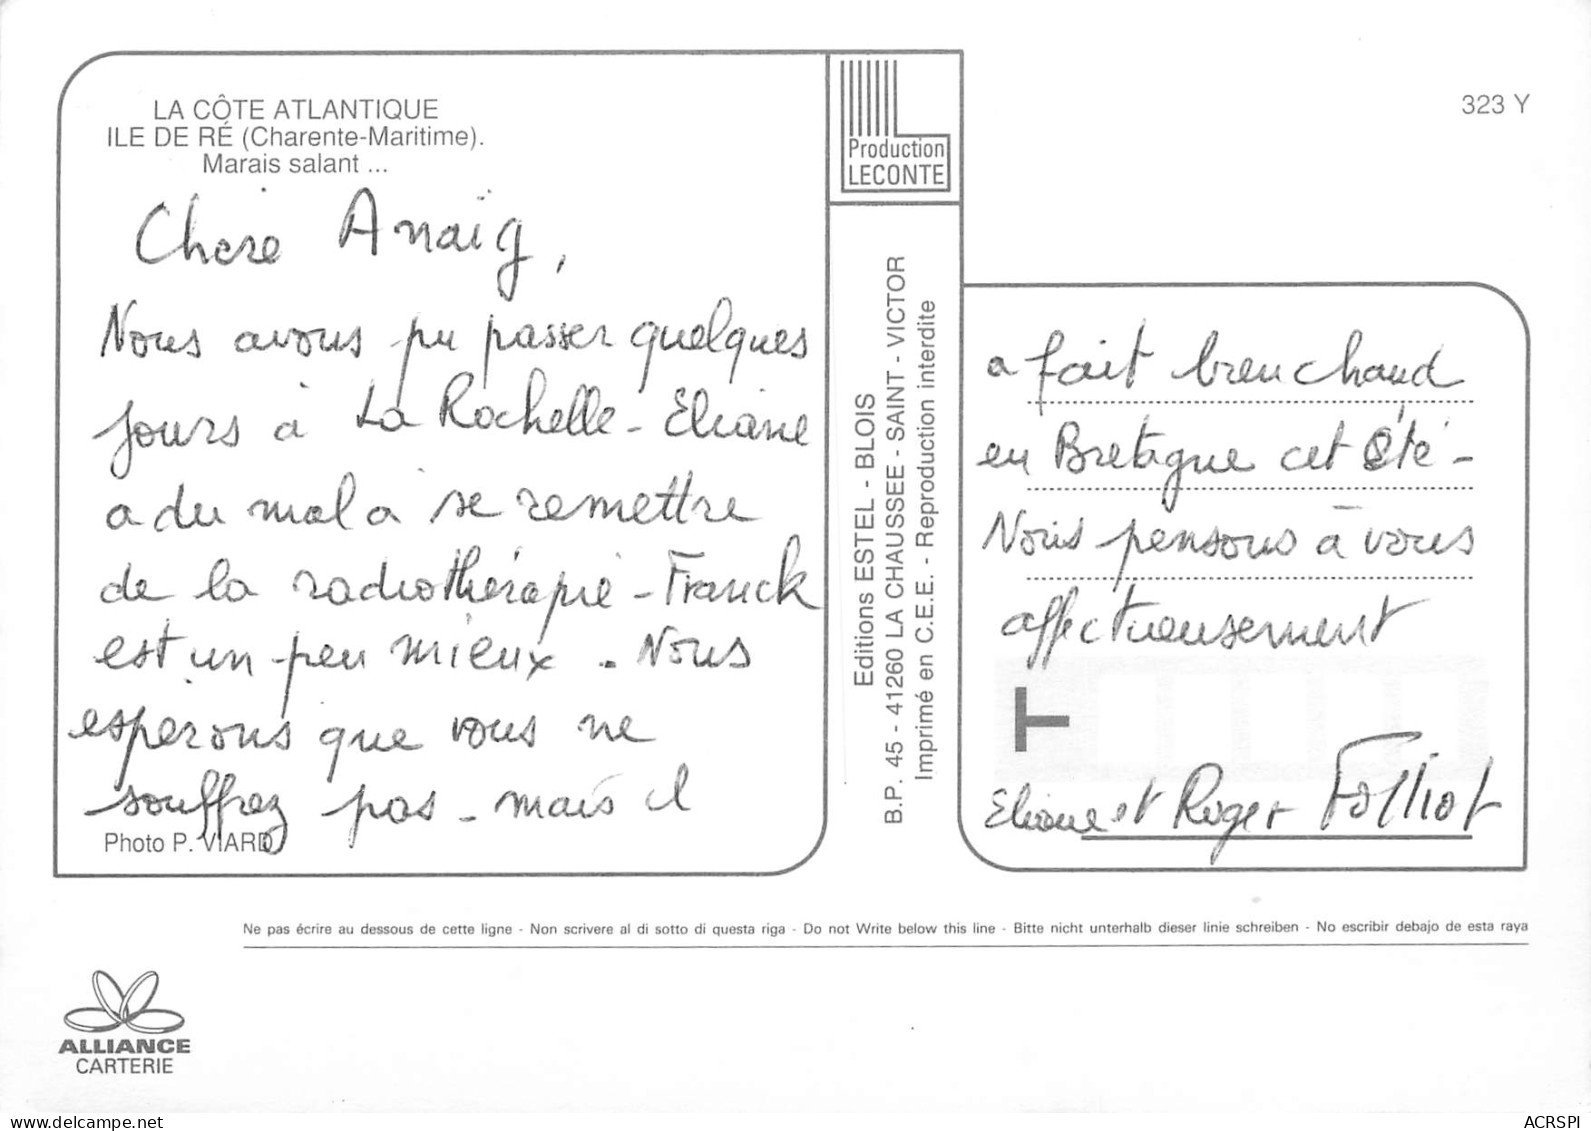 LA CÔTE ATLANTIQUE
ILE DE RÉ (Charente-Maritime).
Marais salant ...
Chere Anaïg,
Nous avons pu passer quelques
jours à La Rochelle - Eliane
a du mal à se remettre
de la radiothérapie - Franck
est un peu mieux . Nous
esperons que vous ne
souffrez pas - mais il
Photo P. VIARD
Production
LECONTE
Editions ESTEL - BLOIS
B.P. 45 - 41260 LA CHAUSSEE - SAINT - VICTOR
Imprimé en C.E.E. - Reproduction interdite
323 Y
a fait bien chaud
en Bretagne cet été -
Nous pensons à vous
affectueusement
T
Eliane et Roger Folliot
Ne pas écrire au dessous de cette ligne - Non scrivere al di sotto di questa riga - Do not Write below this line - Bitte nicht unterhalb dieser linie schreiben - No escribir debajo de esta raya
ALLIANCE
CARTERIE
www.delcampe.net
ACRSPI